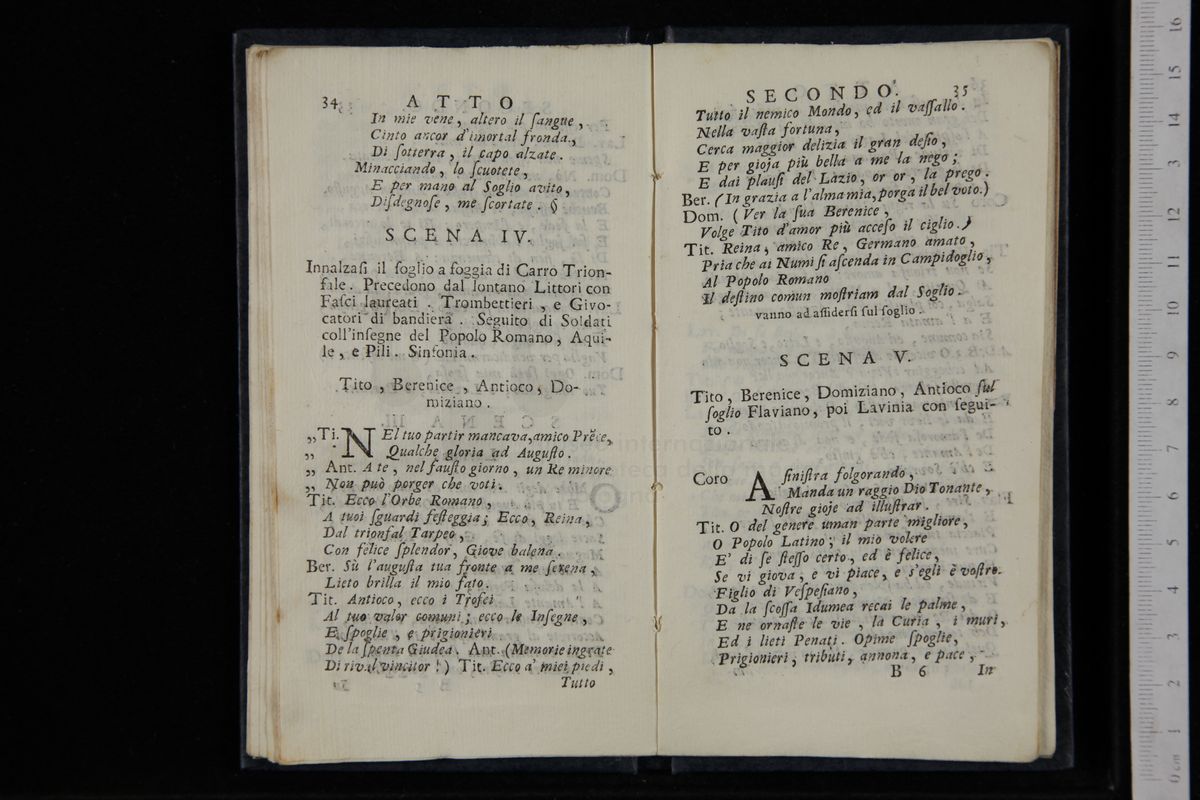 34 ATTO
In mie vene, altero il ſangue,
Cinto ancor d'imortal fronda,
Di ſotterra, il capo alzate.
Minacciando, lo ſcuotete,
E per mano al Soglio avito,
Diſdegnoſe, me ſcortate. §
SCENA IV.
Innalzaſi il ſoglio a foggia di Carro Trion-
fale. Precedono dal lontano Littori con
Faſci laureati. Trombettieri, e Givo-
catori di bandiera. Seguito di Soldati
coll'inſegne del Popolo Romano, Aqui-
le, e Pili. Sinfonia.
Tito, Berenice, Antioco, Do-
miziano.
„Ti. NEl tuo partir mancava, amico Prēce,
„ Qualche gloria ad Auguſto.
„ Ant. A te, nel fauſto giorno, un Re minore
„ Non può porger che voti.
Tit. Ecco l'Orbe Romano,
A tuoi ſguardi feſteggia; Ecco, Reina,
Dal trionfal Tarpeo,
Con felice ſplendor, Giove balena.
Ber. Sù l'auguſta tua fronte a me ſerena,
Lieto brilla il mio fato.
Tit. Antioco, ecco i Trofei
Al tuo valor comuni; ecco le Inſegne,
E ſpoglie, e prigionieri
De la ſpenta Giudea. Ant. (Memorie ingrate
Di rival vincitor!) Tit. Ecco a' miei piedi,
Tutto
SECONDO. 35
Tutto il nemico Mondo, ed il vaſſallo.
Nella vaſta fortuna,
Cerca maggior delizia il gran deſio,
E per gioja più bella a me la nego;
E dai plauſi del Lazio, or or, la prego.
Ber. (In grazia a l'alma mia, porga il bel voto.)
Dom. (Ver la ſua Berenice,
Volge Tito d'amor più acceſo il ciglio.)
Tit. Reina, amico Re, Germano amato,
Pria che ai Numi ſi aſcenda in Campidoglio,
Al Popolo Romano
Il deſtino comun moſtriam dal Soglio.
vanno ad aſſiderſi ſul ſoglio.
SCENA V.
Tito, Berenice, Domiziano, Antioco ſul
ſoglio Flaviano, poi Lavinia con ſegui-
to.
Coro A ſiniſtra folgorando,
Manda un raggio Dio Tonante,
Noſtre gioje ad illuſtrar.
Tit. O del genere uman parte migliore,
O Popolo Latino; il mio volere
E' di ſe ſteſſo certo, ed è felice,
Se vi giova, e vi piace, e s'egli è voſtro.
Figlio di Veſpeſiano,
Da la ſcoſſa Idumea recai le palme,
E ne ornaſte le vie, la Curia, i muri,
Ed i lieti Penati. Opime ſpoglie,
Prigionieri, tributi, annona, e pace,
B 6 In
16
15
14
13
12
11
10
9
8
7
6
5
4
3
2
1
0 cm